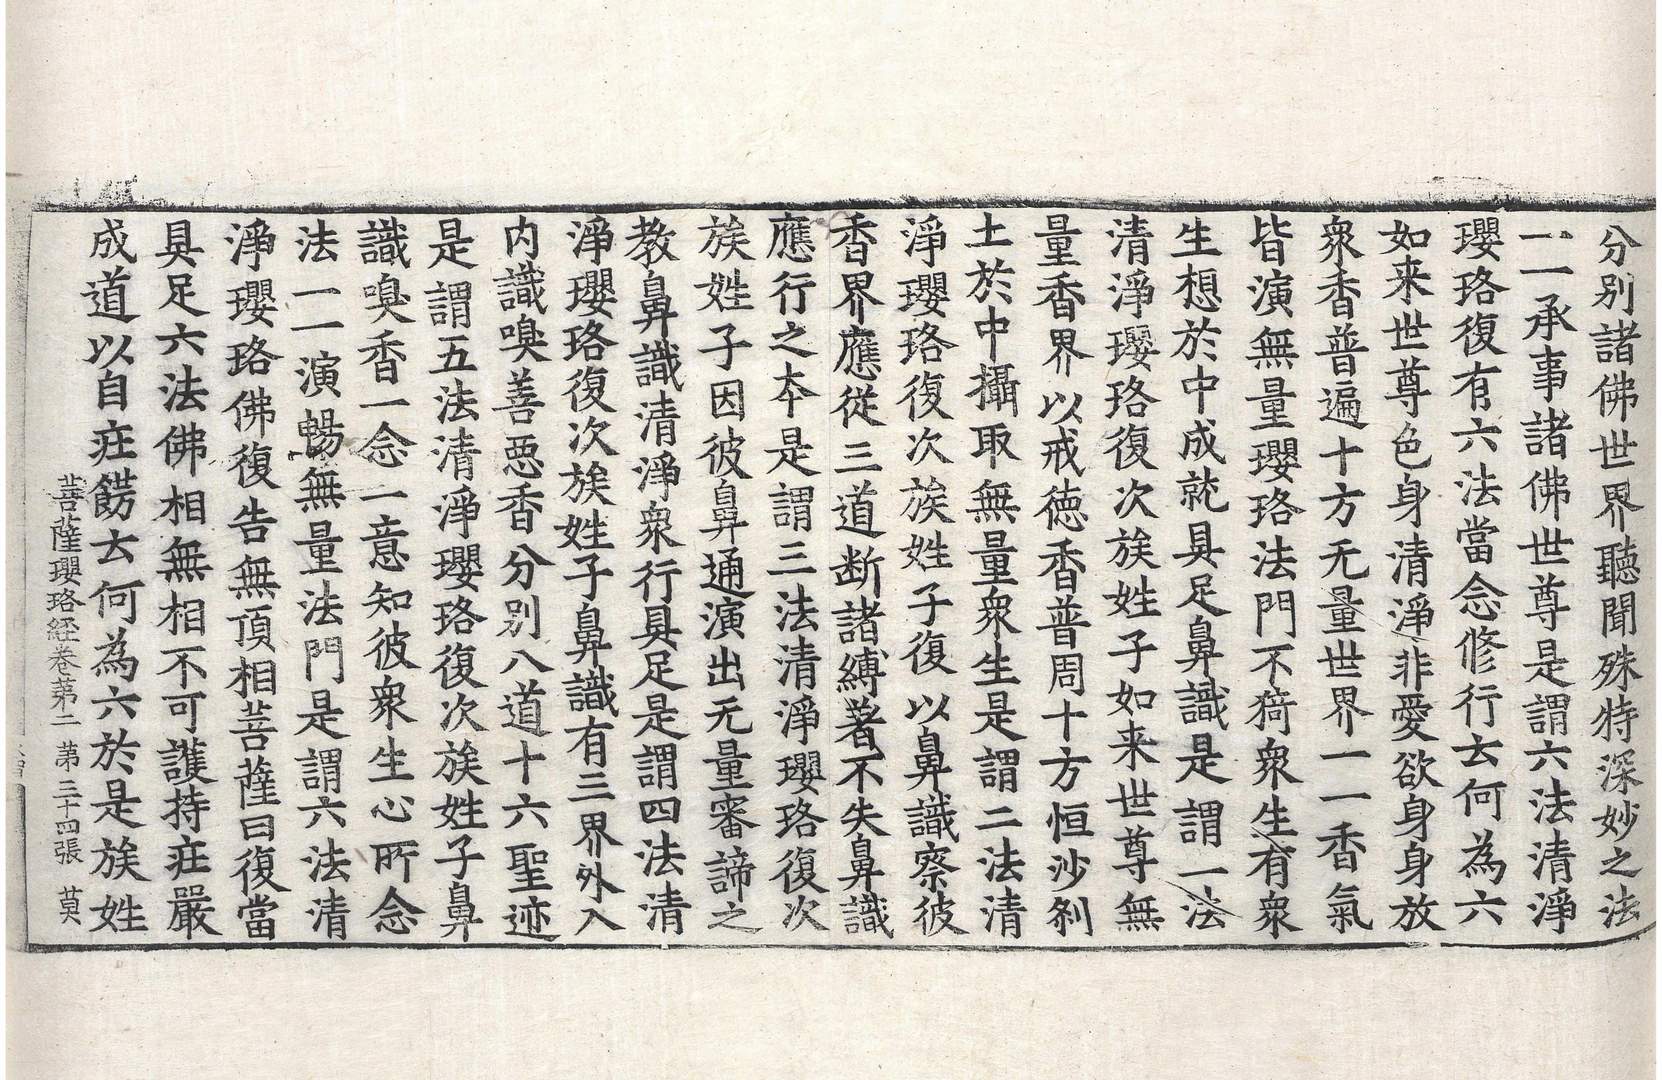 分别諸佛世界聽聞殊特深妙之法
一一承事諸佛世尊是謂六法清淨
瓔珞復有六法當念修行云何為六
如来世尊色身清淨非愛欲身身放
衆香普遍十方无量世界一一香氣
皆演無量瓔珞法門不猗衆生有衆
生想於中成就具足鼻識是謂一法
清淨瓔珞復次族姓子如来世尊無
量香界以戒德香普周十方恒沙刹
土於中攝取無量衆生是謂二法清
淨瓔珞復次族姓子復以鼻識察彼
香界應從三道断諸縛著不失鼻識
應行之本是謂三法清淨瓔珞復次
族姓子因彼鼻通演出无量審諦之
教鼻識清淨衆行具足是謂四法清
淨瓔珞復次族姓子鼻識有三界外入
内識嗅善惡香分别八道十六聖迹
是謂五法清淨瓔珞復次族姓子鼻
識嗅香一念一意知彼衆生心所念
法一一演暢無量法門是謂六法清
淨瓔珞佛復告無頂相菩薩曰復當
具足六法佛相無相不可護持莊嚴
成道以自莊餝云何為六於是族姓
菩薩瓔珞經卷第二　第三十四張　莫